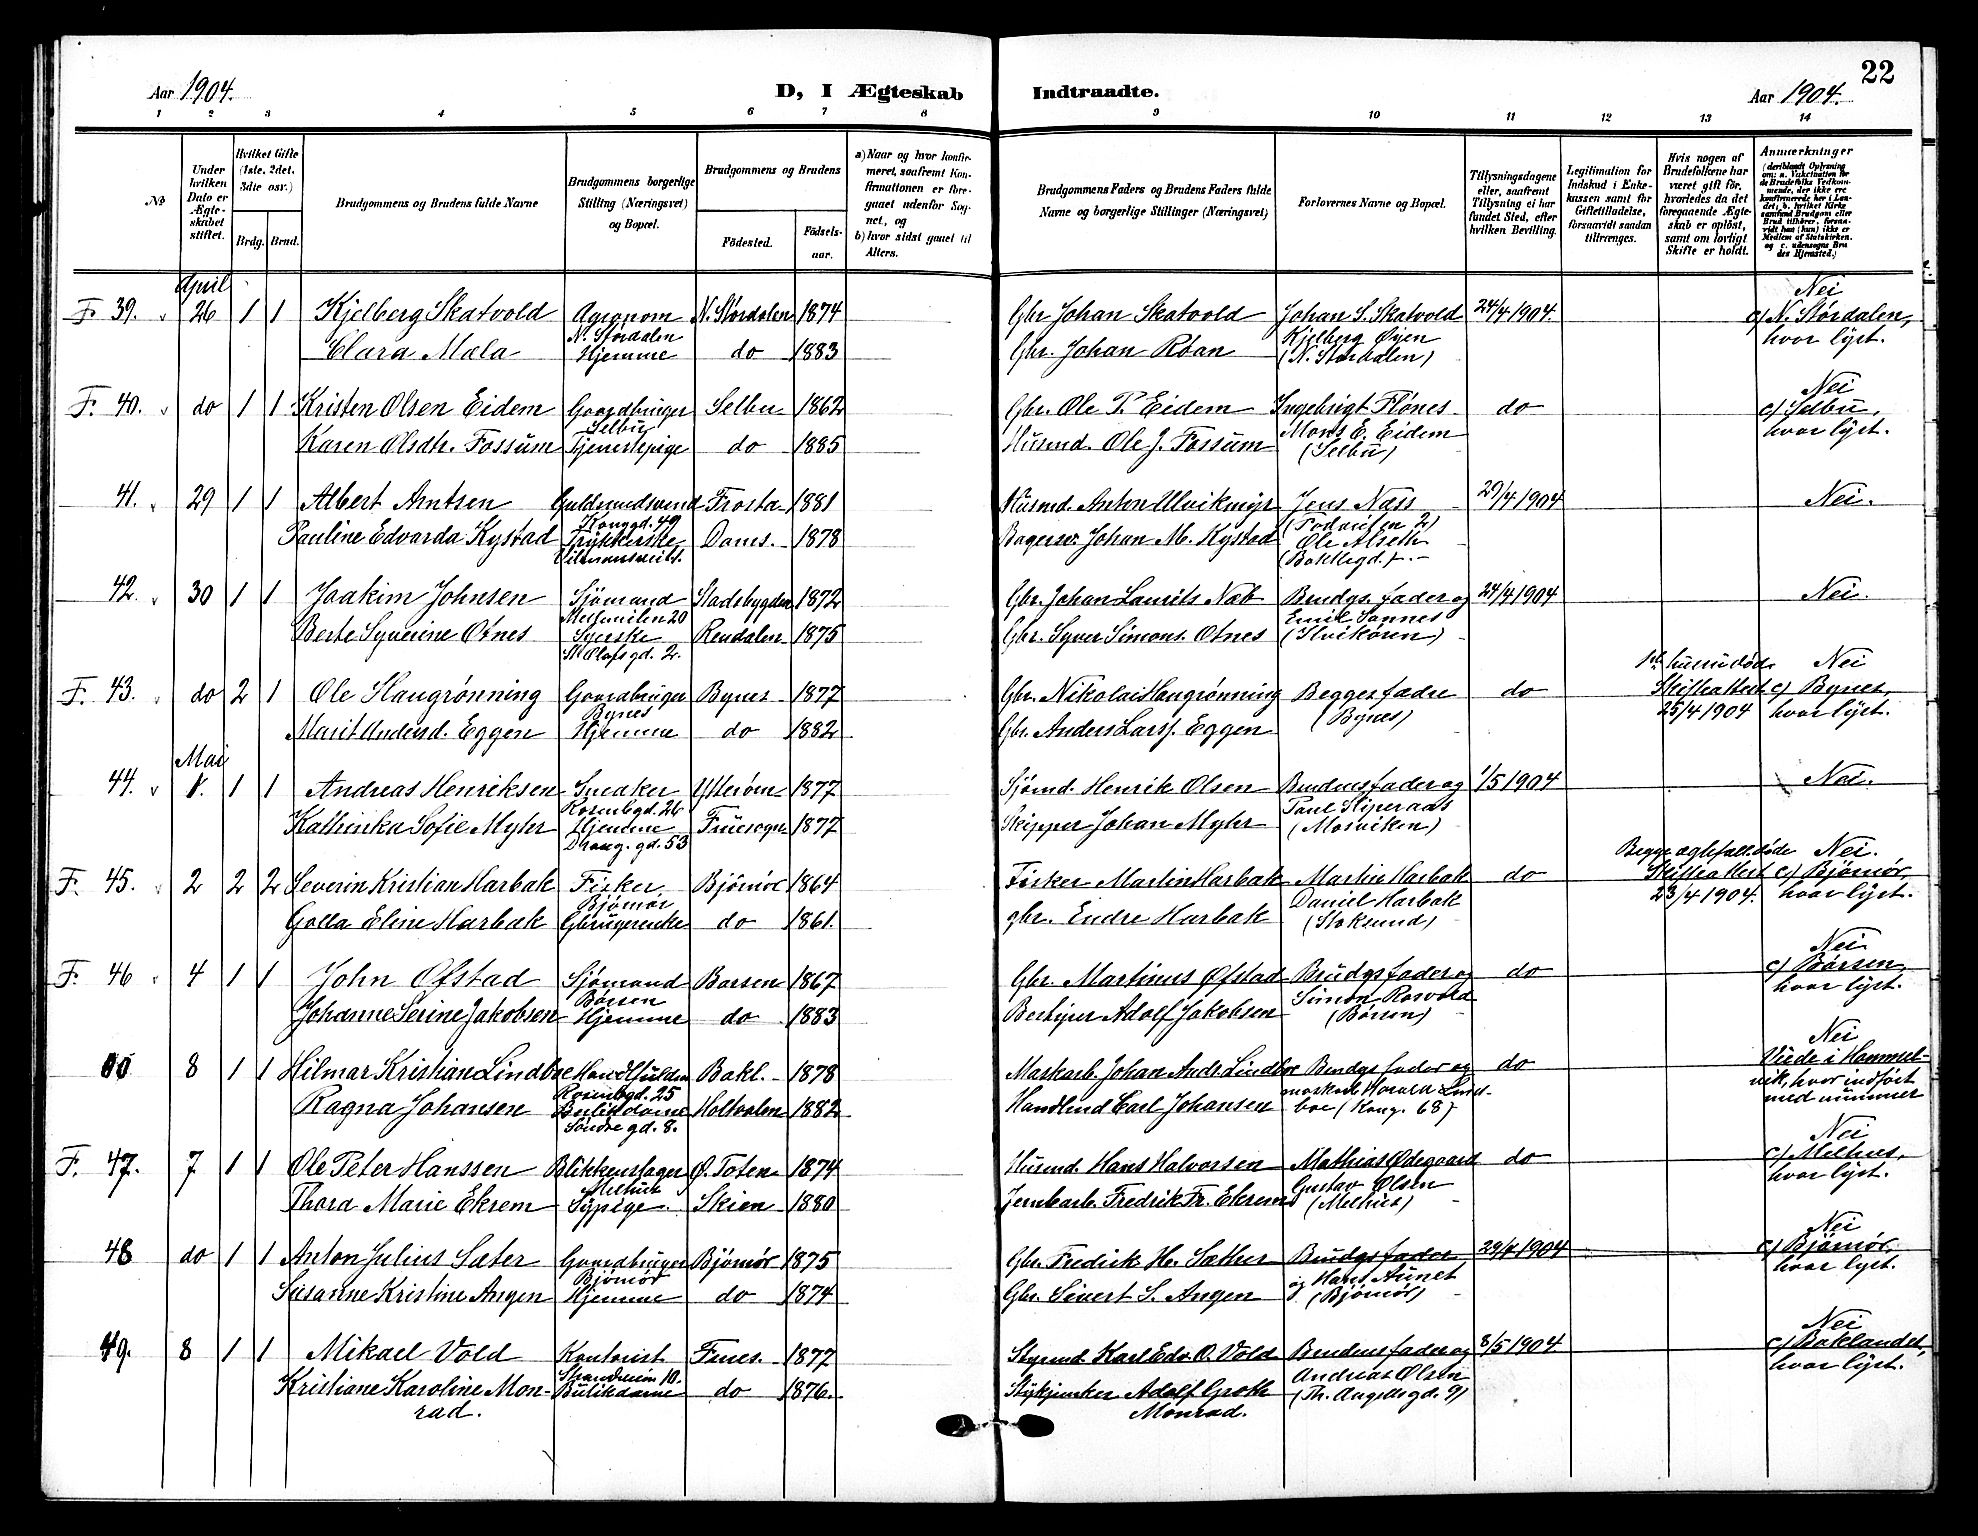 22
Aar 1904.
D, I Ægteskab Indtraadte.
Aar 1904.
1 2 3 4 5 6 7 8 9 10 11 12 13 14
№
Under hvilken Dato er Ægteskabet stiftet.
Hvilket Gifte (1ste. 2det. 3die osv.)
Brdg. Brud.
Brudgommens og Brudens fulde Navne
Brudgommens borgerlige Stilling (Næringsvei) og Bopæl.
Brudgommens og Brudens
Födested. Födselsaar.
a) Naar og hvor konfirmeret, saafremt Konfirmationen er foregaaet udenfor Sognet, og
b) hvor sidst gaaet til Alters.
Brudgommens Faders og Brudens Faders fulde Navne og borgerlige Stillinger (Næringsvei)
Forlovernes Navne og Bopæl.
Tillysningsdagene eller, saafremt Tillysning ei har fundet Sted, efter hvilken Bevilling.
Legitimation for Indskud i Enkekassen samt for Giftetilladelse, forsaavidt saadan tiltrænges.
Hvis nogen af Brudefolkene har været gift för, hvorledes da det foregaaende Ægteskab er oplöst, samt om lovligt Skifte er holdt.
Anmærkninger
April Nei
F. 39. 26 1 1 Kjelberg Skatvold Agronom N. Størdalen 1874 Gbr Johan Skatvold Johan S. Skatvold 24/4 1904. c) N. Størdalen,
N. Størdalen Kjelberg Øien hvor lyst.
Clara Mæla Hjemme do 1883 Gbr. Johan Røan (N. Størdalen)
Nei
F. 40. do 1 1 Kristen Olsen Eidem Gaardbruger Selbu 1862 Gbr. Ole P. Eidem Ingebrigt Flønes do c) Selbu,
Selbu Mons E. Eidem hvor lyst.
Karen Olsdtr. Fossum Tjenestepige do 1885 Husmd. Ole J. Fossum (Selbu)
41. 29 1 1 Albert Arntsen Guldsmedsvend Frosta 1881 Husmd. Anton Ulvikmyr Jens Næss 1904 Nei.
Kongd. 49
Pauline Edvarda Kystad Trykkerske Doms. 1878 Bagersv Johan M. Kystad Ole Alseth
(Baklegd.)
42. 30 1 1 Joakim Johnsen Sjømand Stadsbygden 1872 Gbr. Johan Laurits Næb Brudgs. fader og 24/4 1904 Nei.
Mellemilen 20 Emil Sannes
Berte Syverine Otnes Syerske Rendalen 1875 Gbr. Syver Simons. Otnes (Ilvikøren)
St Olafs gd. 2.
1ste hustru døde Nei
F. 43. do 2 1 Ole Haugrønning Gaardbruger Bynes 1877 Gbr. Nikolai Haugrønning Begges fædre do Skifteattest c) Bynes,
Bynes (Bynes) 25/4 1904 hvor lyst.
Marit Andersd. Eggen Hjemme do 1882 Gbr. Anders Larss. Eggen
Mai
44. 1. 1 1 Andreas Henriksen Snekker Ytterøen 1877 Sjømd. Henrik Olsen Brudens fader og 1/5 1904 Nei.
Rosenbgd. 26 Paul
Kathinka Sofie Myhr Hjemme Fruesogn 1877 Skipper Johan Myhr (Mosviken)
Drong. gd. 53
Begge ægtefæll. døde Nei.
F. 45. 2 2 2 Severin Kristian Harbak Fisker Bjørnør 1864 Fisker Martin Harbak Martin Harbak do Skifteattest c) Bjørnør,
Bjørnør Daniel Harbak 23/4 1904. hvor lyst.
Golla Eline Harbak Gbrugerenke do 1861. gbr. Endre Harbak (Stoksund)
Nei.
F. 46 4 1 1 John Øfstad Sjømand Børsen 1867 Gbr. Martinus Øfstad Brudgs fader og do c) Børsen,
Børsen Simon Rosvold hvor lyst.
Johanne Serine Jakobsen Hjemme do 1883 Adolf Jakobsen (Børsen)
Nei
00 8 1 1 Hilmar Kristian Lindboe Bakl. 1878 Maskarb. Johan Andr. Lindboe Brudgs fader og do Viede i Hommelvik, hvor indført med nummer
Rosenbgd. 25 Harald Lindboe (Kong. 68)
Ragna Johansen Butikdame Holtaalen 1882 Handlend Carl Johansen
Søndre gd. 8.
Nei
F. 47. 7 1 1 Ole Peter Hanssen Blikkenslager Ø. Toten 1874 Husmd. Hans Halvorsen Mathias Ødegaard do c) Melhus,
Melhus Gustav Olsen hvor lyst.
Thora Marie Ekrem Sypige. Skien 1880 Jernbarb. Fredrik Fr. Ekrem (Melhus)
Nei
48 do 1 1 Anton Julius Sæter Gaardbruger Bjørnør 1875 Gbr. Fredrik H. Sæther Brudgs fader 1904 c) Bjørnør,
Bjørnør og Hans Aunet hvor lyst.
Susanne Kristine Angen Hjemme do 1874 Gbr. Sivert S. Angen (Bjørnør)
Nei
49. 8 1 1 Mikael Vold Kontorist Frues. 1877 Styrmd. Karl Edv. O. Vold Brudens fader og 8/5 1904 c) Baklandet,
Strandveien 10. Andreas Olsen hvor lyst.
Kristiane Karoline Mon- Butikdame do 1876. Stykjunker Adolf Groth (Th. Angells gd. 9)
rad. Monrad.